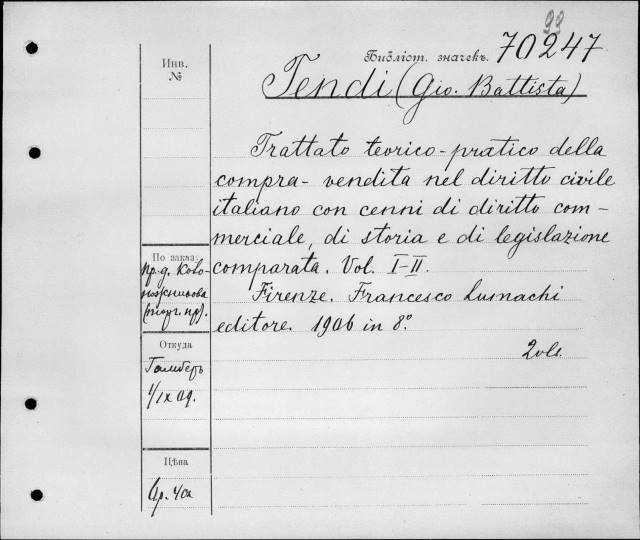 22
Библіот. значекъ. 70247
Инв.
№
Tendi (Gio. Battista)
Trattato teorico-pratico della
compra-vendita nel diritto civile
italiano con cenni di diritto com-
merciale, di storia e di legislazione
comparata. Vol. I-II.
Firenze. Francesco Lumachi
editore. 1906 in 8º
2 vls.
По заказ:
пр. д.
(торг. пр).
Откуда
1/IX 09.
Цѣна